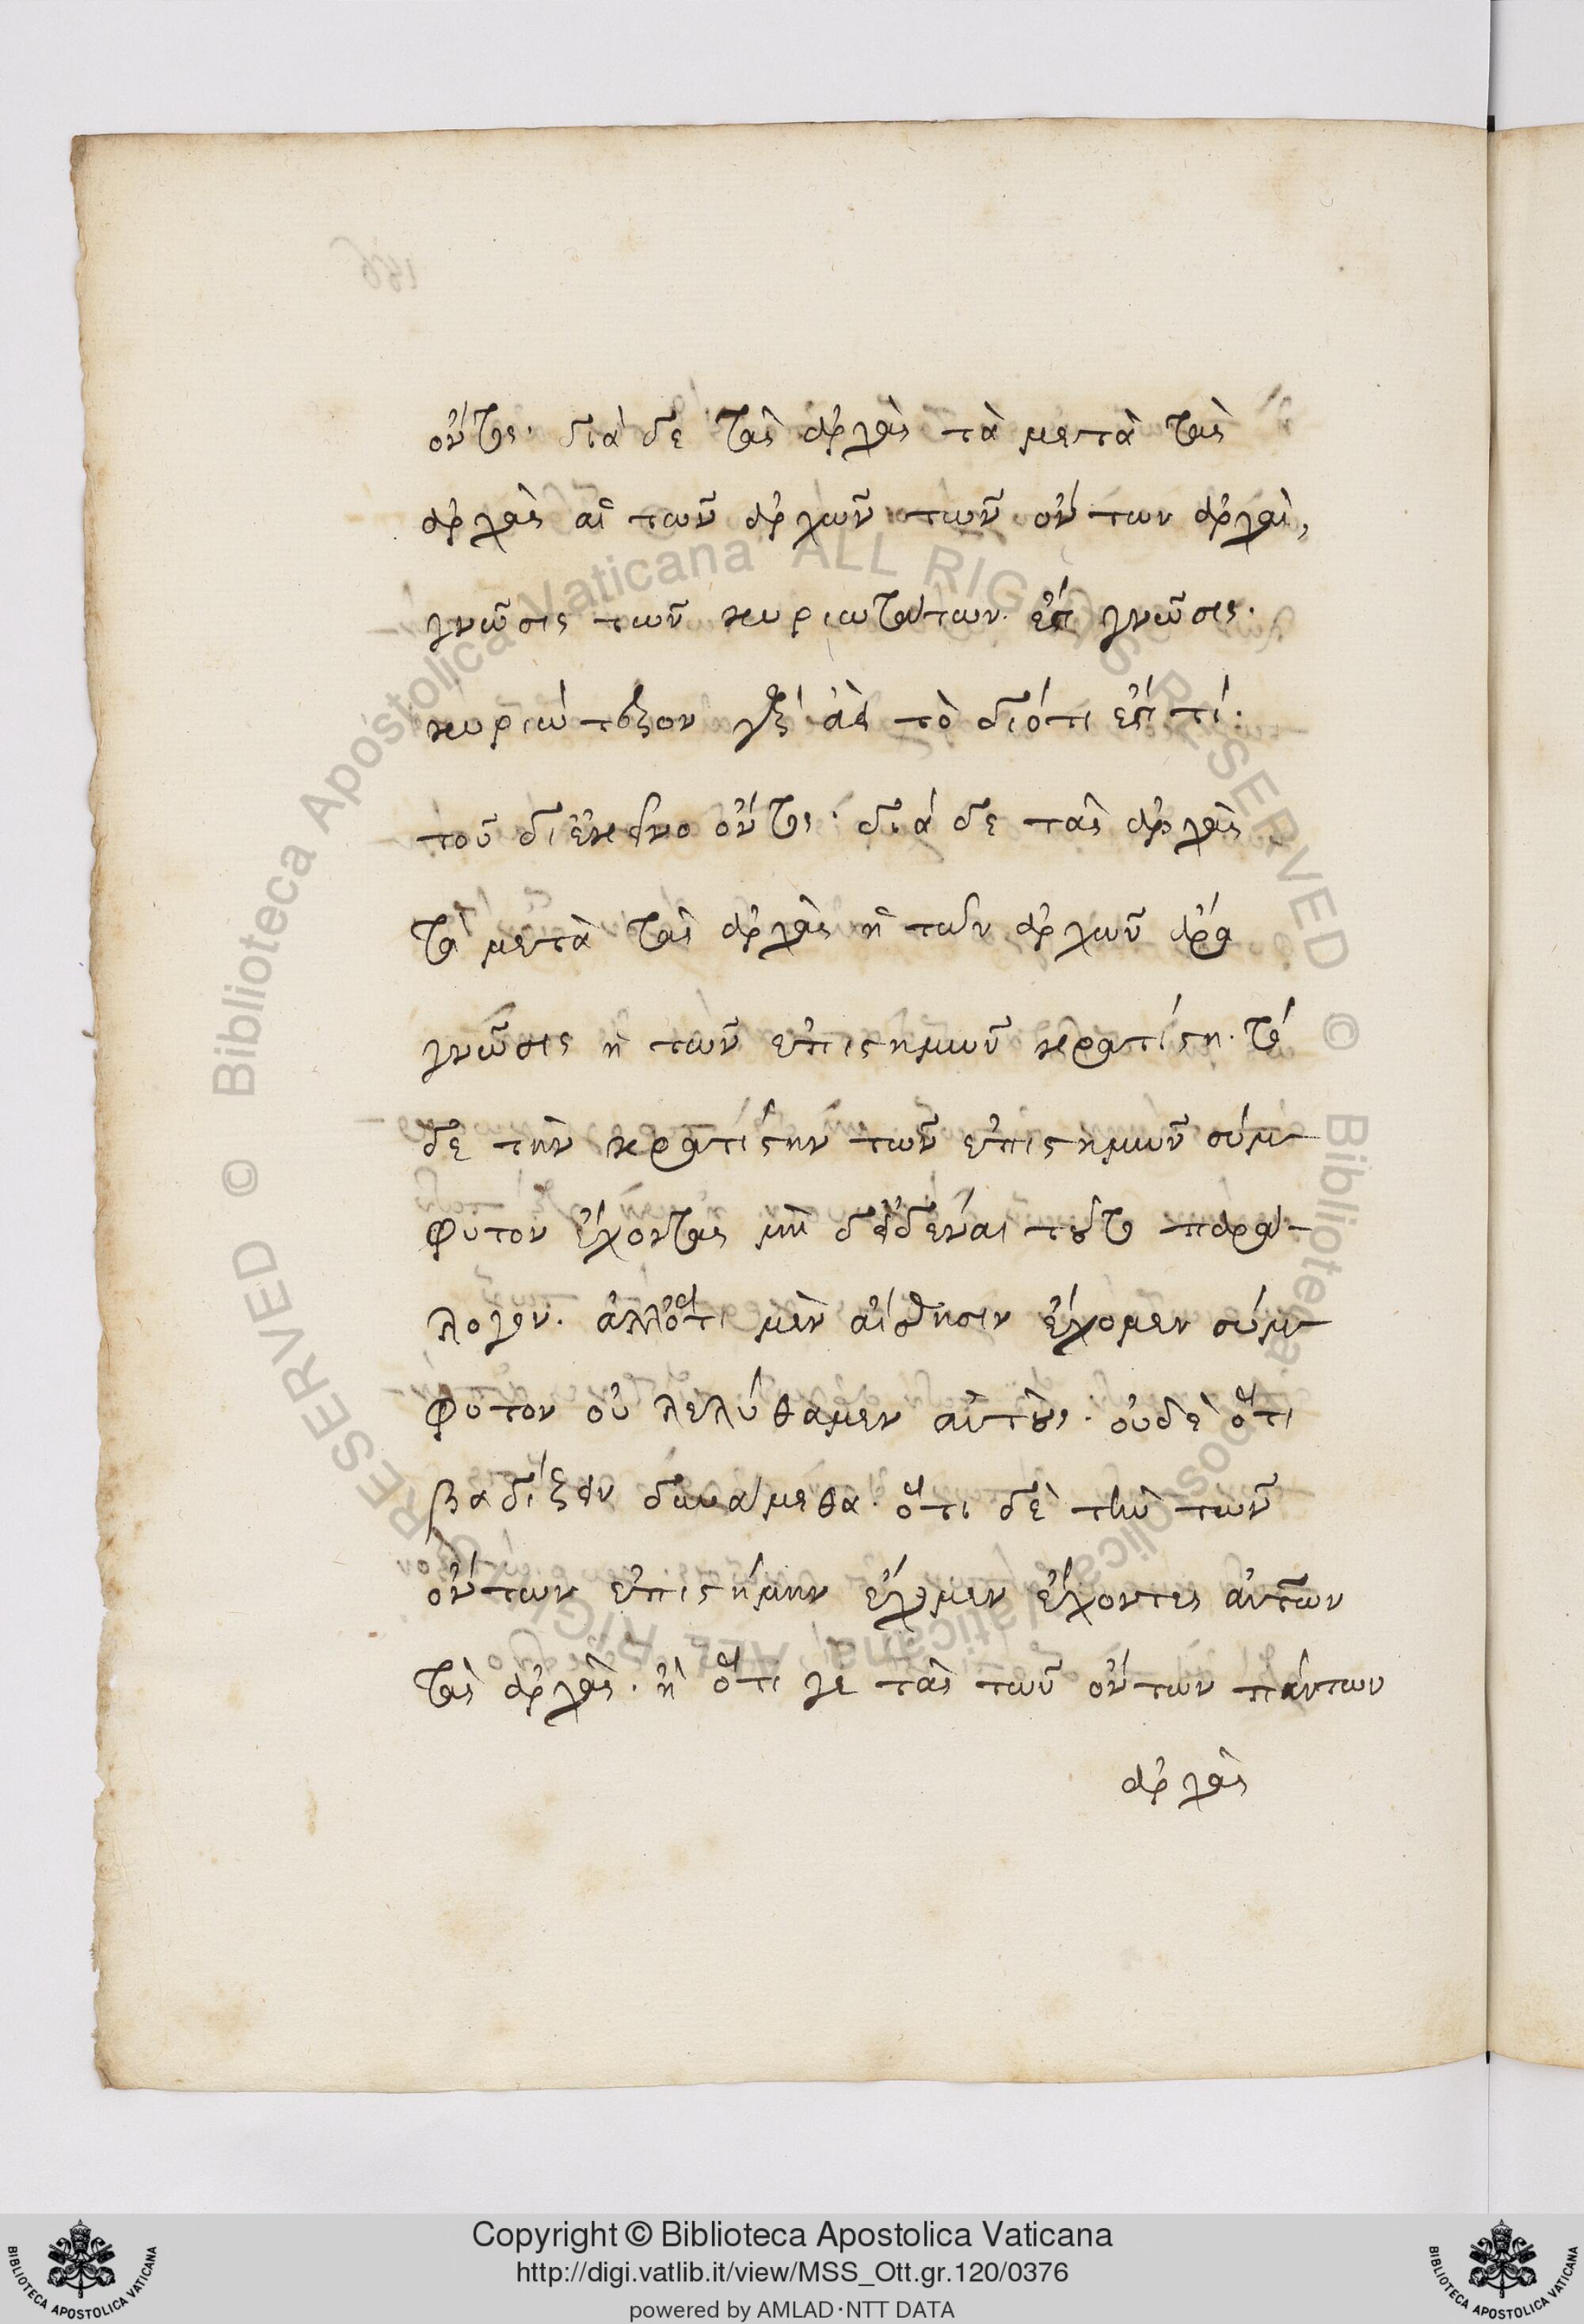 ὄντος. διὰ δε τὰς ἀρχὰς τὰ μετὰ τὰς
ἀρχὰς αἱ τῶν ἀρχῶν τῶν ὄντων ἀρχαὶ,
γνῶσις τῶν κυριωτάτων ἐστὶ γνῶσις.
κυριώτερον γὰρ ἀεὶ τὸ διότι ἐστί τί.
τοῦ διἐκεῖνο ὄντος. διά δε τὰς ἀρχὰς
τὰ μετὰ τὰς ἀρχὰς ἡ τῶν ἀρχῶν ἄρα
γνῶσις ἡ τῶν ἐπιστημῶν κρατίστη. τό
δε τὴν κρατίστην τῶν ἐπιστημῶν σύμ-
φυτον ἔχοντας μὴ εἰδέναι τοῦτο παρά-
λογον. ἀλλὅτι μὲν αἴσθησιν ἔχομεν σύμ-
φυτον οὐ λελήθαμεν αὐτοὺς. οὐδὲ ὅτι
βαδίζειν δυνάμεθα. ὅτι δὲ τὴν τῶν
ὄντων ἐπιστήμην ἔχομεν ἔχοντες αὐτῶν
τὰς ἀρχὰς. ἢ ὅτι γε τὰς τῶν ὄντων πάντων
ἀρχὰς
Copyright © Biblioteca Apostolica Vaticana
http://digi.vatlib.it/view/MSS_Ott.gr.120/0376
powered by AMLAD·NTT DATA
BIBLIOTECA APOSTOLICA VATICANA
BIBLIOTECA APOSTOLICA VATICANA
© Biblioteca Apostolica Vaticana ALL RIGHTS RESERVED © Biblioteca Apostolica Vaticana ALL RIGHTS RESERVED